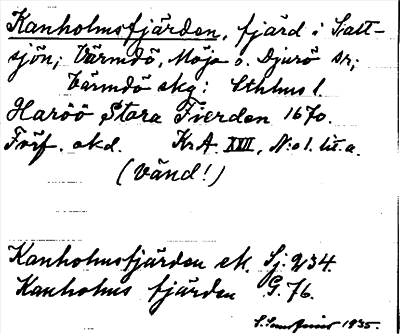 Kanholmsfjärden, fjärd i Salt-
sjön; Värmdö, Möja o. Djurö sr;
Värmdö skg; Sthlms l.
Haröö Stora Fierden 1670.
Förf. okd. KrA. XVII, N:o 1. lit. a.
(Vänd!)
Kanholmsfjärden ek. Sj. 234.
Kanholms fjärden G. 76.
1935.